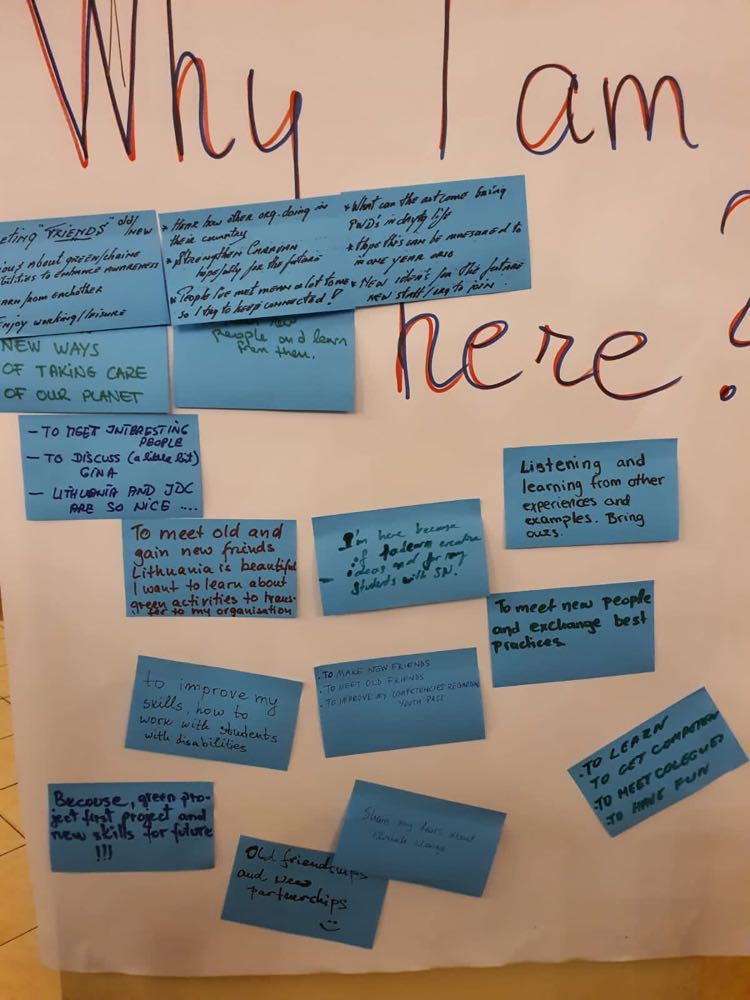 Why I am
here?
eting "FRIENDS" old/new
ious about green/
bilities to enhance awareness
arn from eachother
Enjoy working/leisure
* Hear how other org. doing in
their country
* Strengthen Caravan
hopefully for the future
* People I've met mean a lot to me
so I try to keep connected!
* What can the outcome being
PWD's in dayly life
* Hope this can be measured to
in one year and
* New idea's for the future
new staff/org to join.
NEW WAYS
OF TAKING CARE
OF OUR PLANET
people and learn
from them.
- TO MEET INTERESTING
PEOPLE
- TO DISCUSS (a little bit)
GINA
- LITHUANIA AND JDC
ARE SO NICE ....
Listening and
learning from other
experiences and
examples. Bring
ours.
To meet old and
gain new friends
Lithuania is beautiful
I want to learn about
green activities to trans-
fer to my organisation
I'm here because
of to learn creative
ideas and for my
students with SN.
To meet new people
and exchange best
practices.
to improve my
skills, how to
work with students
with disabilities
. TO MAKE NEW FRIENDS
. TO MEET OLD FRIENDS
. TO IMPROVE MY COMPETENCIES REGARDING
YOUTH PASS
. TO LEARN
. TO GET COMPETEN
. TO MEET COLEGUES
. TO HAVE FUN
Because, green pro-
ject first project and
new skills for future
!!!
Share my about
Old friendships
and New
partnerships